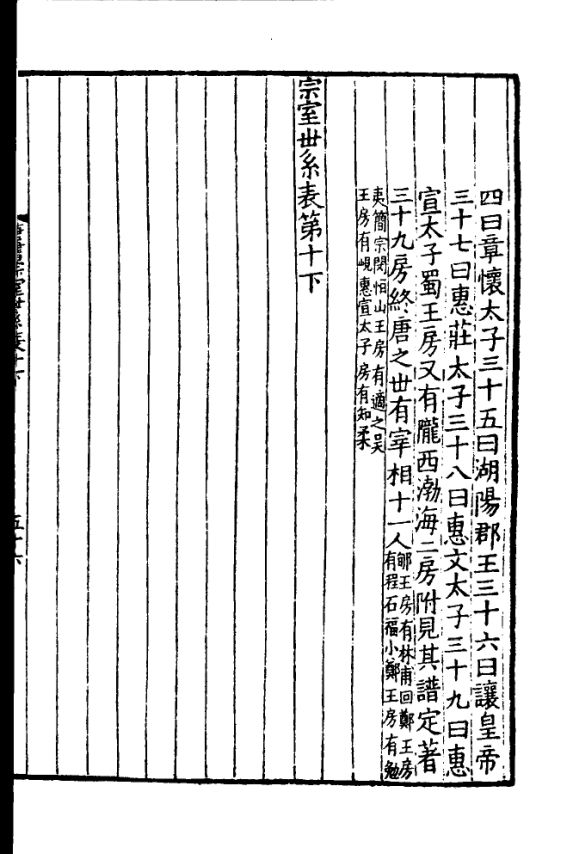 四曰章懷太子三十五曰湖陽郡王三十六曰讓皇帝
三十七曰惠莊太子三十八曰惠文太子三十九曰惠
宣太子蜀王房又有隴西渤海二房附見其譜定著
三十九房終唐之世有宰相十一人郇王房有林甫回鄭王房
有程石福小鄭王房有勉
夷簡宗閔恒山王房有適之吳
王房有峴惠宣太子房有知柔
宗室世系表第十下